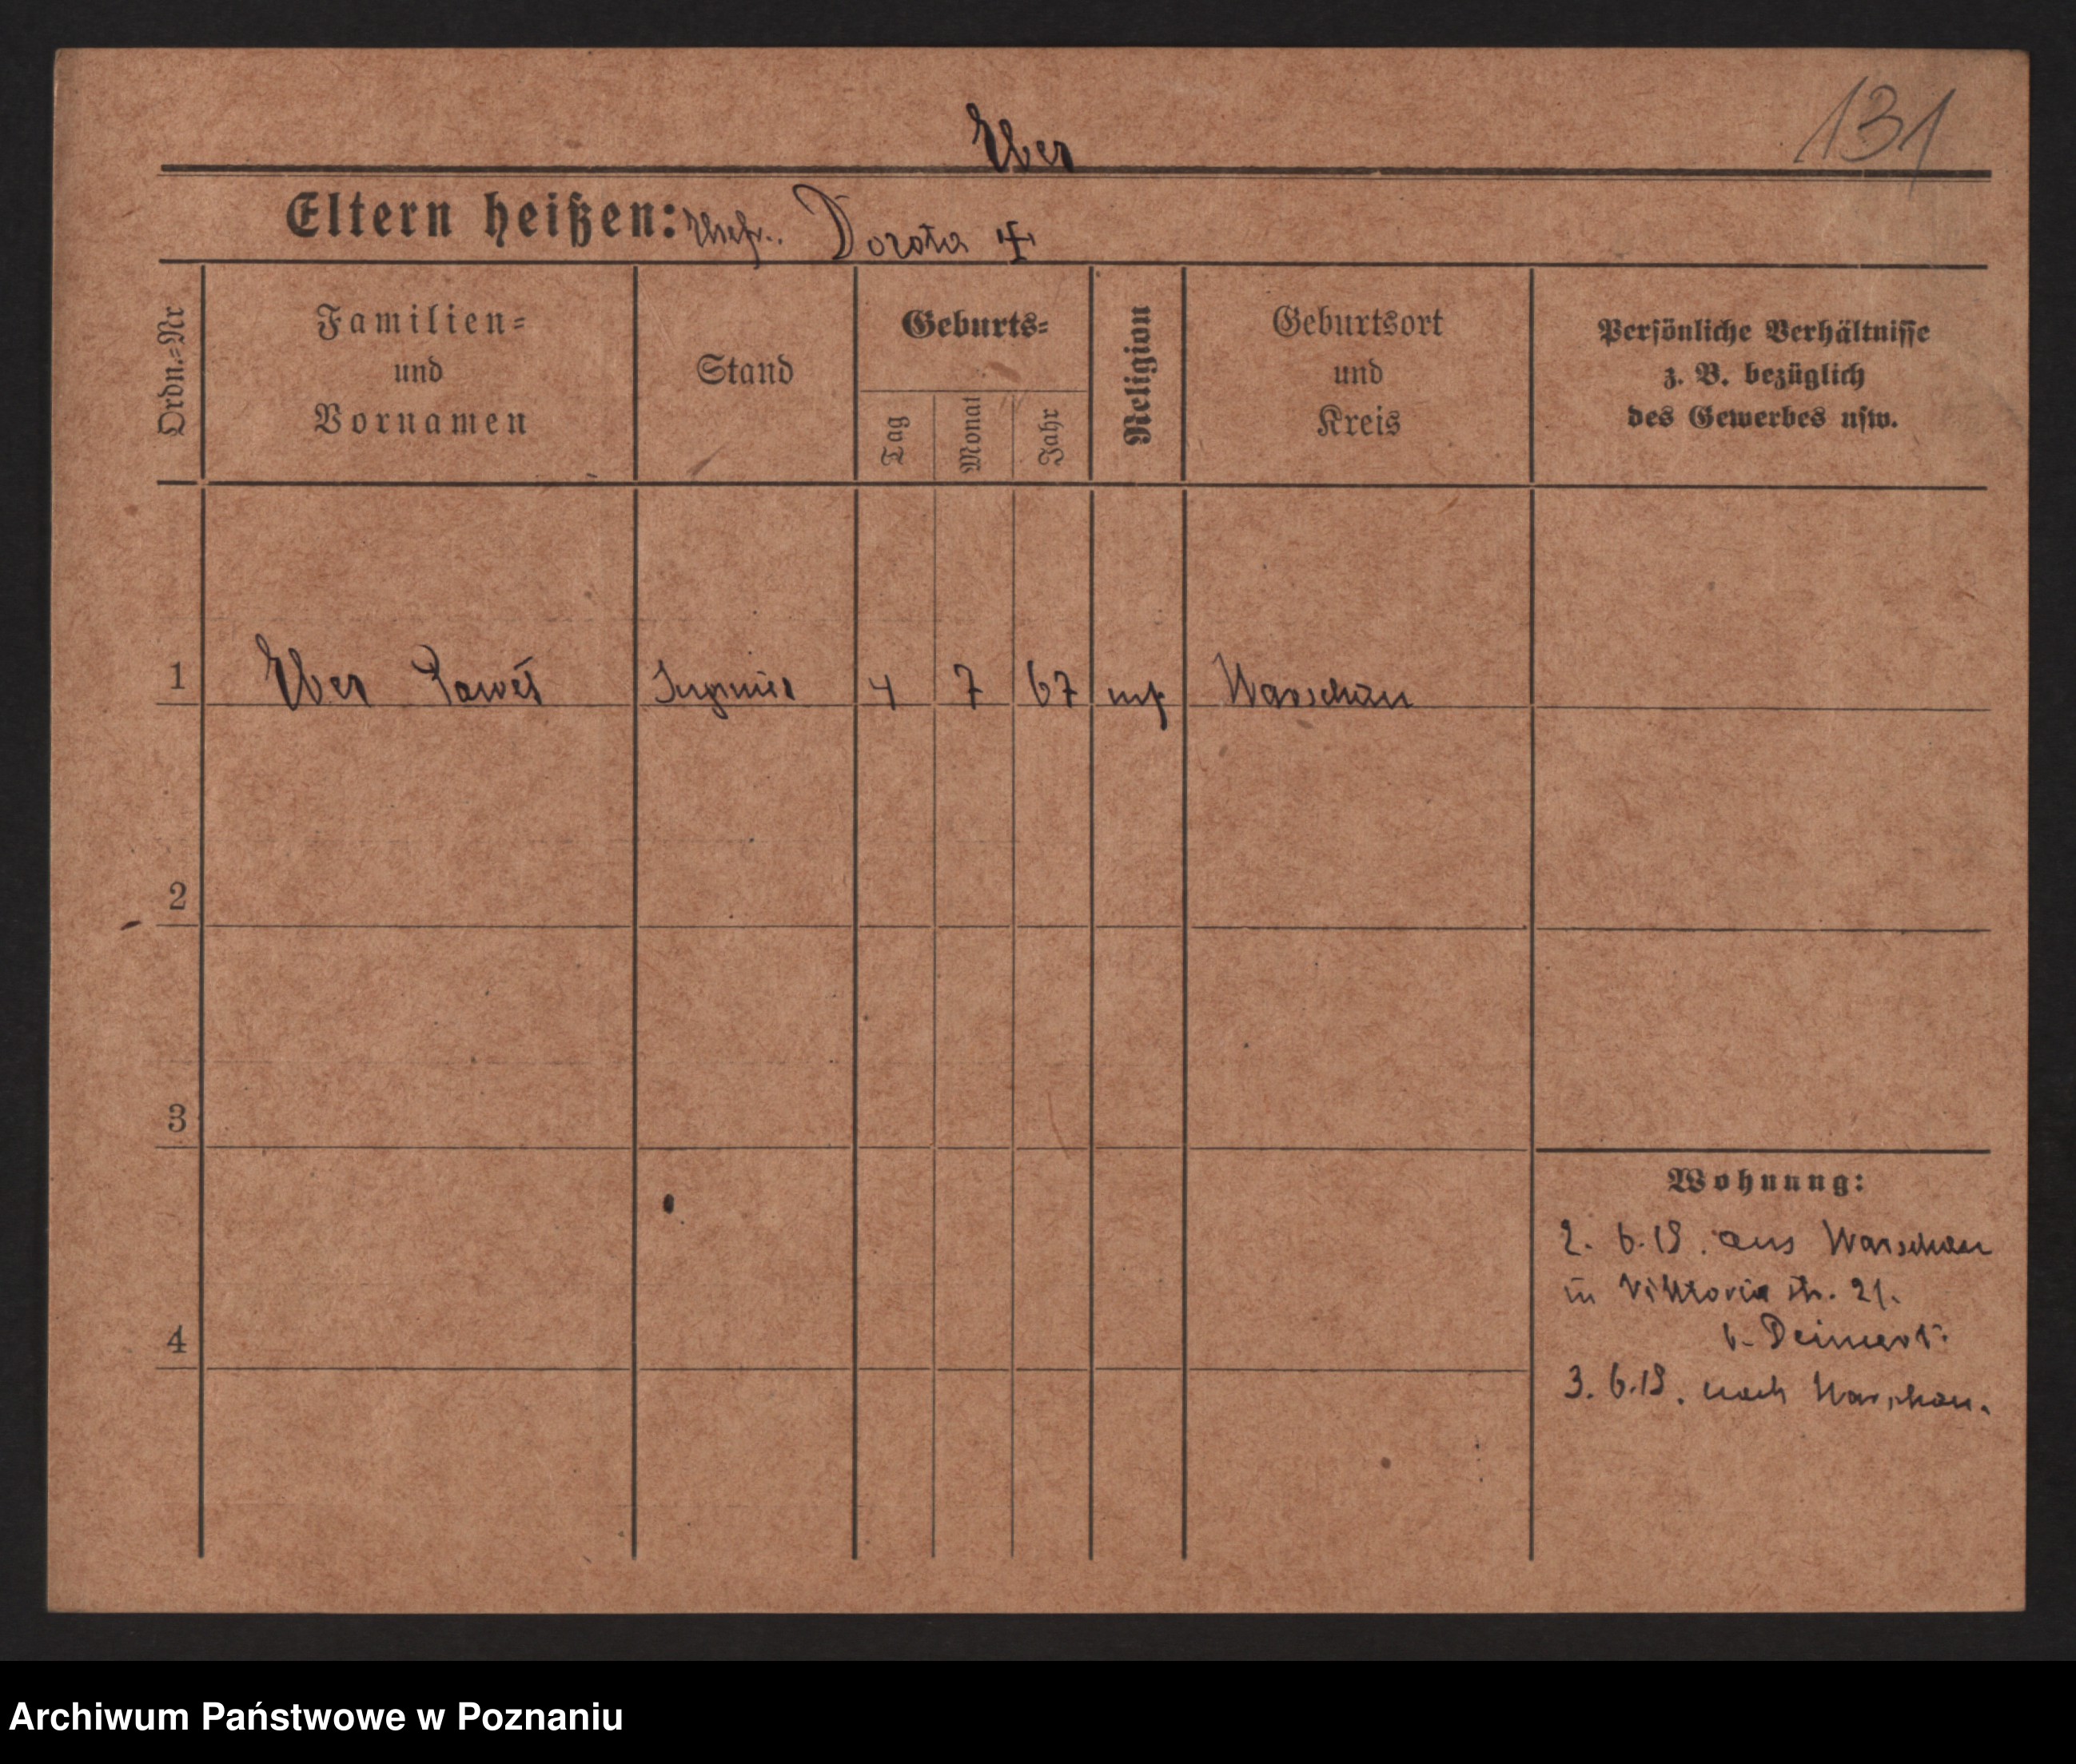 131
Eber
Eltern heißen: Dorota
Ordn.=Nr
Familien=
und
Vornamen
Stand
Geburts=
Tag
Monat
Jahr
Religion
Geburtsort
und
Kreis
Persönliche Verhältnisse
z. B. bezüglich
des Gewerbes usw.
1 Eber Paweł 4 7 67 Warschau
2
3
4
Wohnung:
2. 6.19. aus Warschau
in Viktoria str. 21.
b.
3. 6.19. nach Warschau.
Archiwum Państwowe w Poznaniu